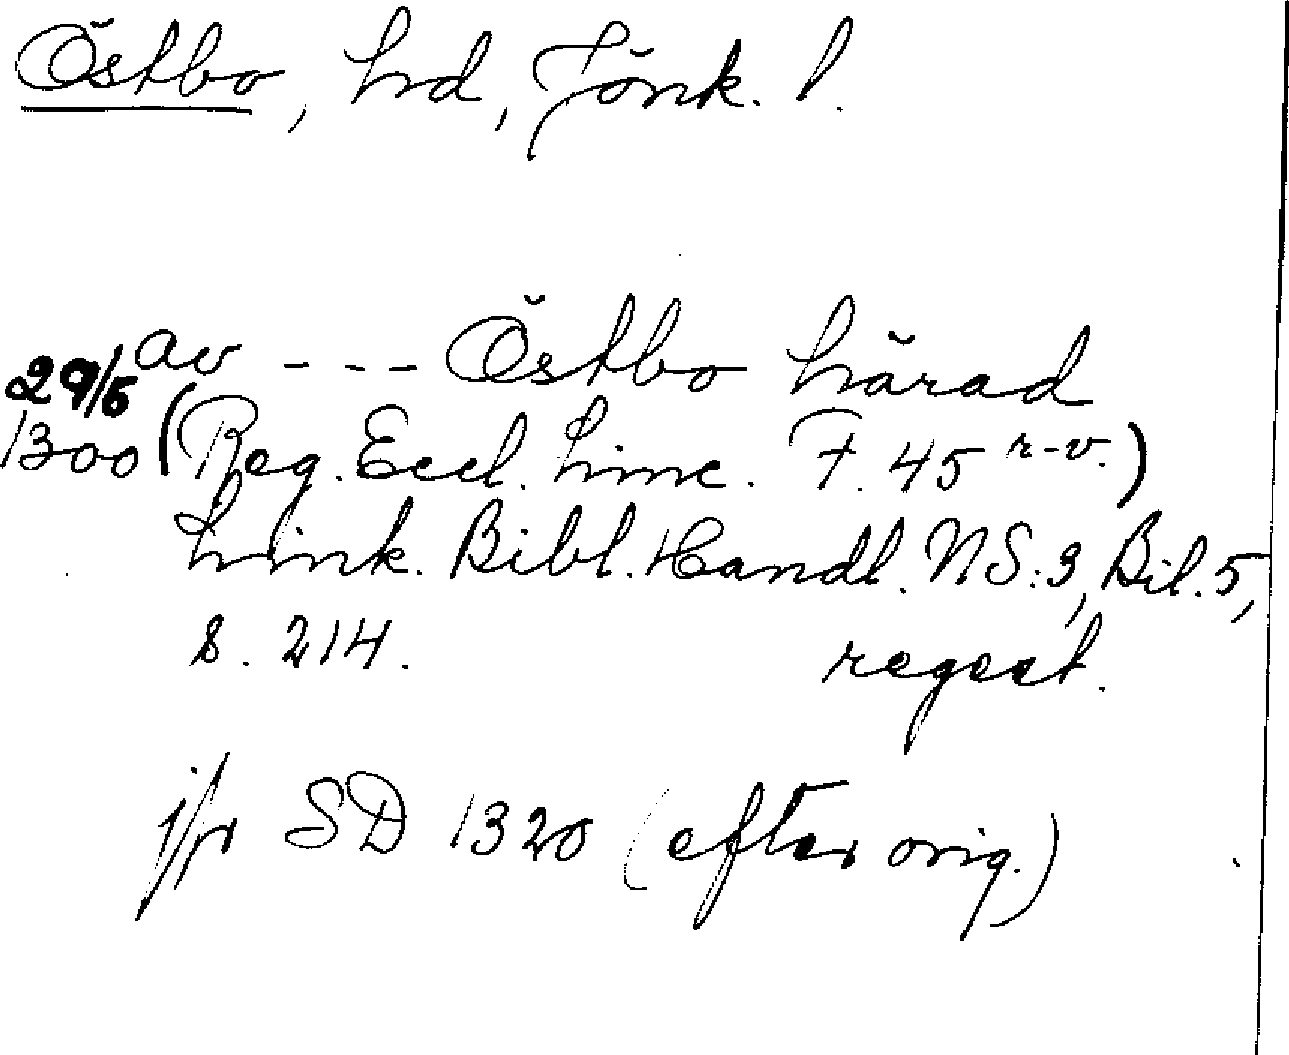 Östbo, hd, Jönk. l.
av --- Östbo härad
29/5
1300 (Reg. Eccl. Linc. F. 45 r-v.)
Link. Bibl. Handl. NS:3, Bil. 5,
s. 214. regest.
jfr SD 1320 (efter orig.)